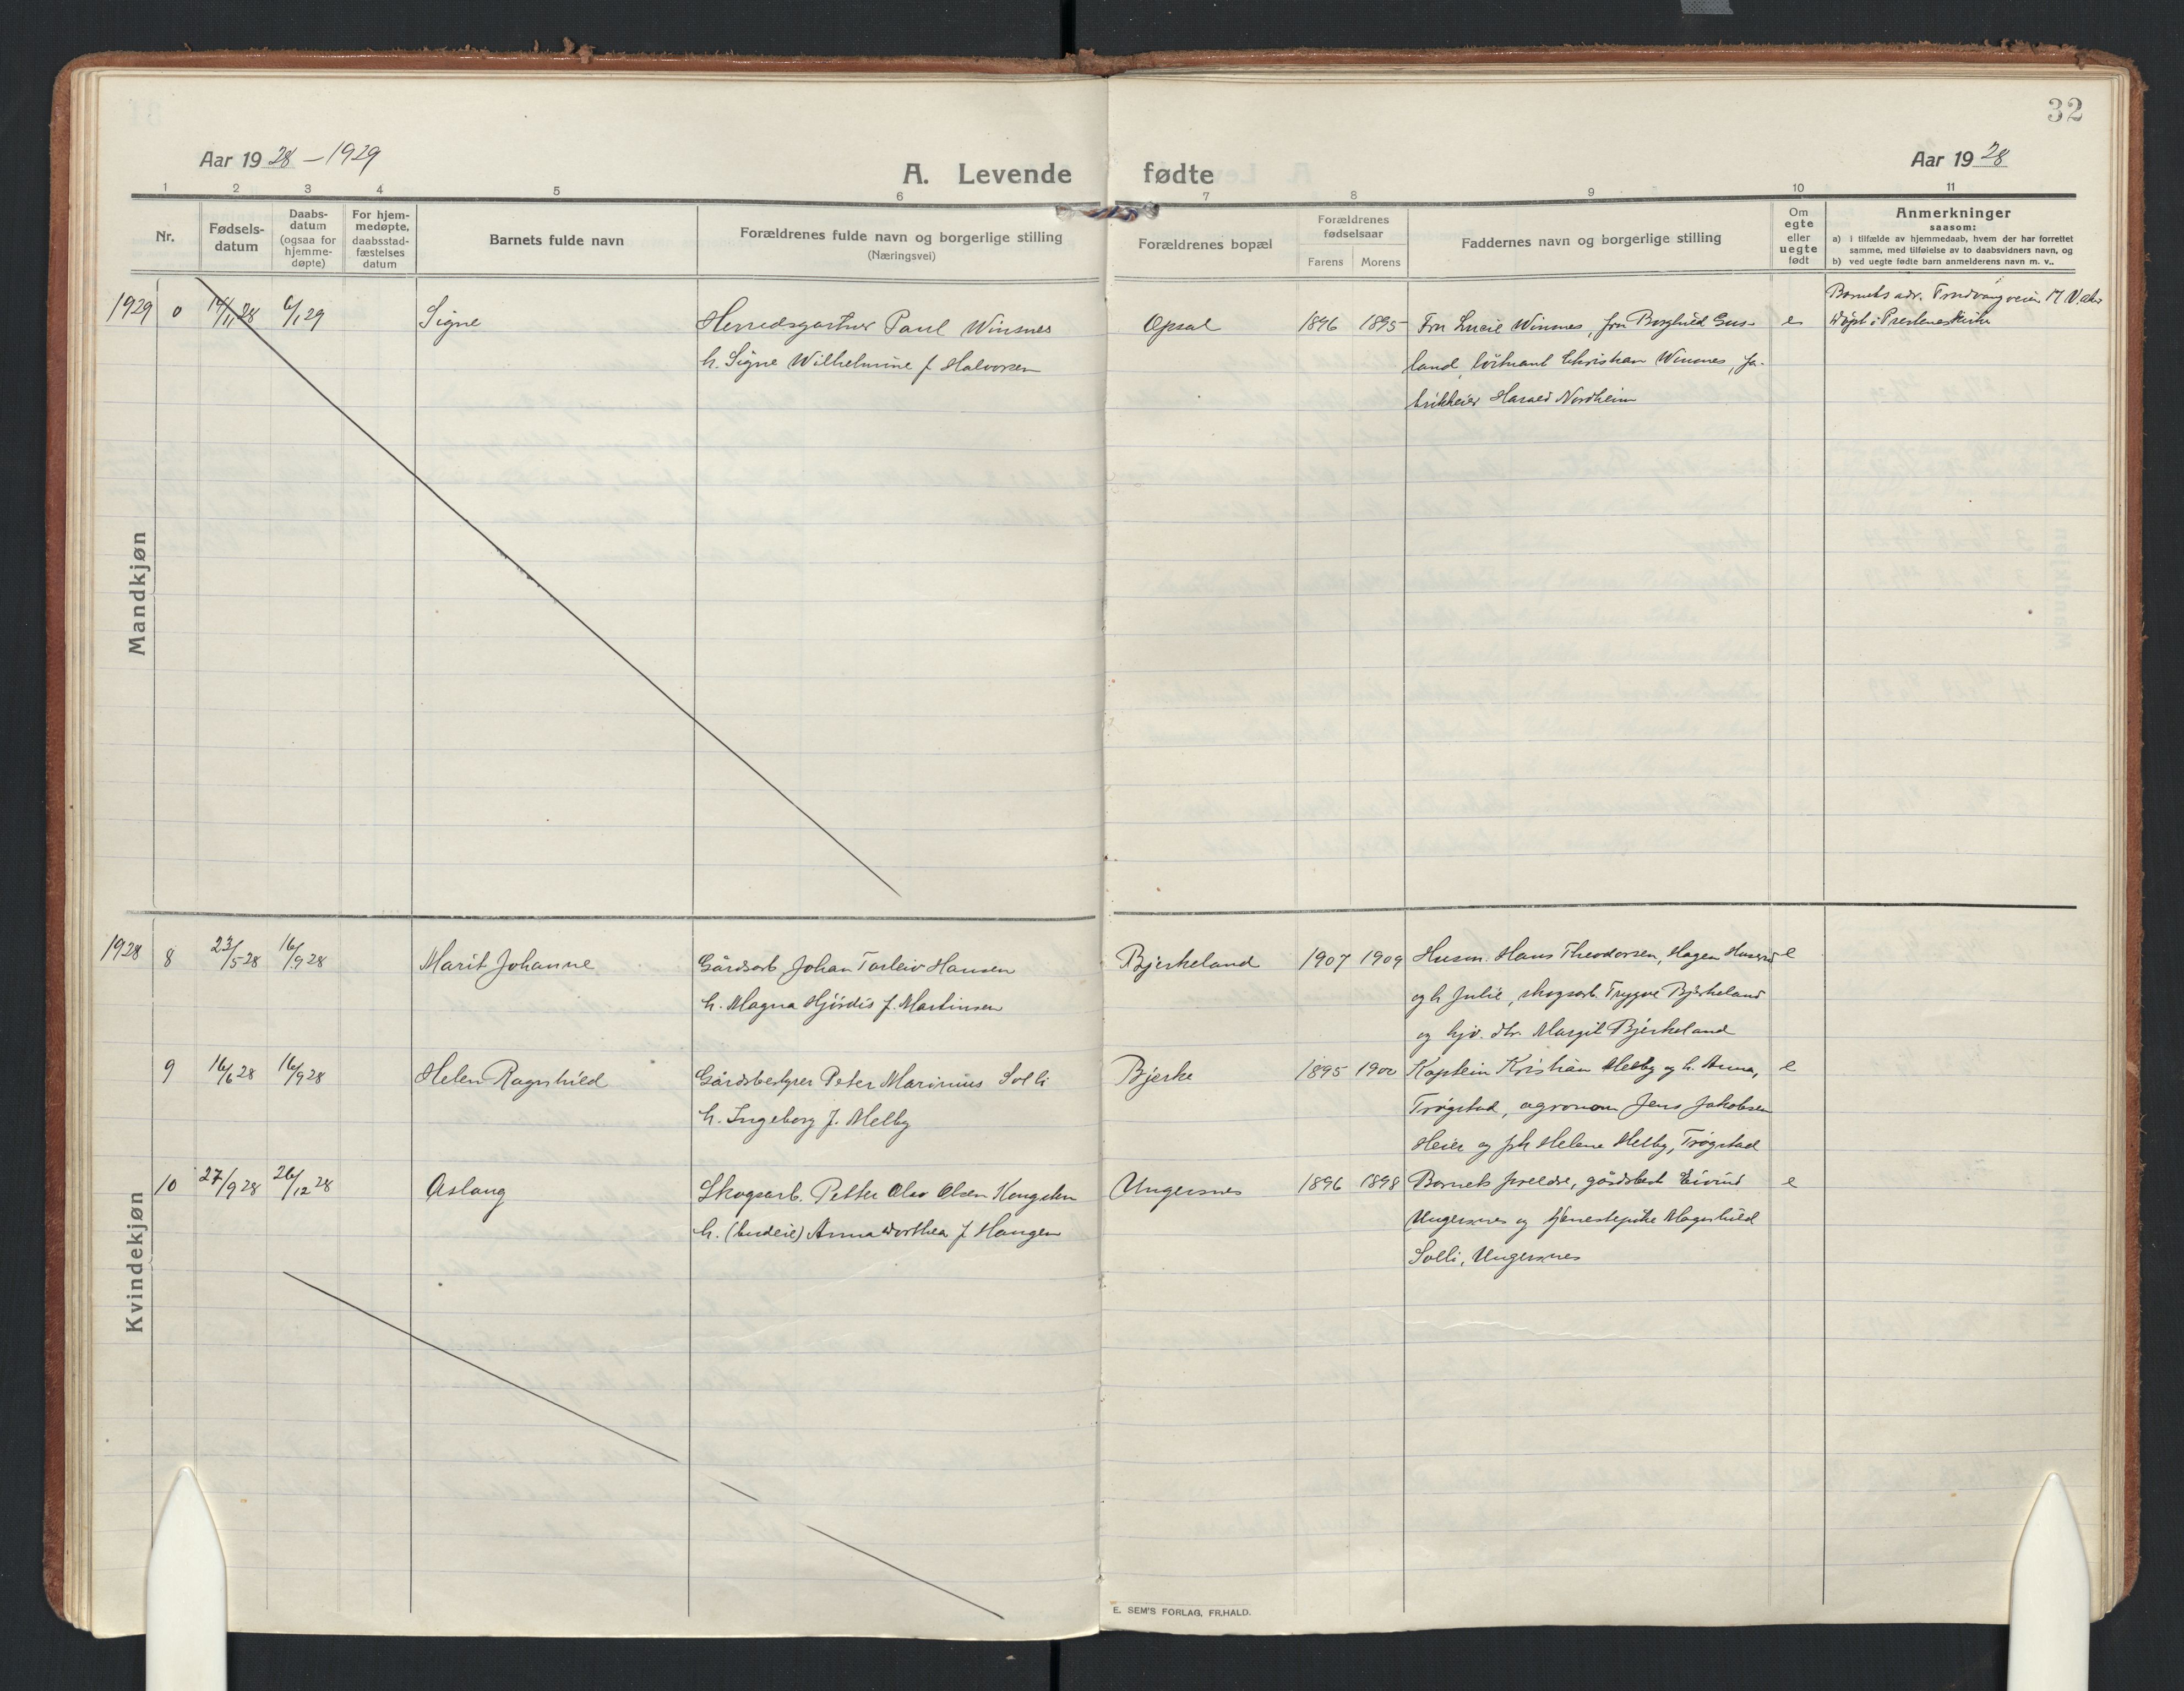 32
Aar 1928 – 1929
A. Levende fødte
Aar 1928
1 2 3 4 5 6 7 8 9 10 11
Nr.
Fødsels-
datum
Daabs-
datum
(ogsaa for
hjemme-
døpte)
For hjem-
medøpte,
daabsstad-
fæstelses
datum
Barnets fulde navn
Forældrenes fulde navn og borgerlige stilling
(Næringsvei)
Forældrenes bopæl
Forældrenes
fødselsaar
Farens Morens
Faddernes navn og borgerlige stilling
Om
egte
eller
uegte
født
Anmerkninger
saasom:
a) i tilfælde av hjemmedaab, hvem der har forrettet
samme, med tilføielse av to daabsvidners navn, og
b) ved uegte fødte barn anmelderens navn m. v..
Mandkjøn
1929 0 14/11 28 6/1 29 Signe
Herredsgartner Paul Winsnes
h. Signe Wilhelmine f Halvorsen
Opsal 1896 1895
Fru Lucie Winsnes, fru Borghild Gus-
land, løitnant Christian Winsnes, fa-
brikkeier Harald Nordheim
e
Barnets adr. Trudvangveien 17 V. aker
Døpt i Prestenes kirke
Kvindekjøn
1928 8 23/5 28 16/9 28 Marit Johanne
Gårdsarb. Johan Torleiv Hansen
h. Magna Hjördis f. Martinsen
Bjerkeland 1907 1909
Husm. Hans Theodorsen, Hagen
og h. Julie, skogsarb. Trygve Bjerkeland
og hjv. dtr. Margit Bjerkeland
e
9 16/6 28 16/9 28 Helen Ragnhild
Gårdsbestyrer Peter Marinius Solli
h. Ingeborg f. Melby
Bjerke 1895 1900
Kaptein Kristian Melby og h. Anna,
Trøgstad, agronom Jens Jakobsen
Heier og frk Helene Melby, Trøgstad
e
10 27/9 28 26/12 28 Aslaug
Skogsarb. Petter Olav Olsen Kongsten
h. (budeie) Anna Dorthea f Haugen
Ungersnes 1896 1898
Barnets foreldre, gårdsbest Eivind
Ungersnes og tjenestepike Magnhild
Solli, Ungersnes
e
E. SEM'S FORLAG, FR.HALD.